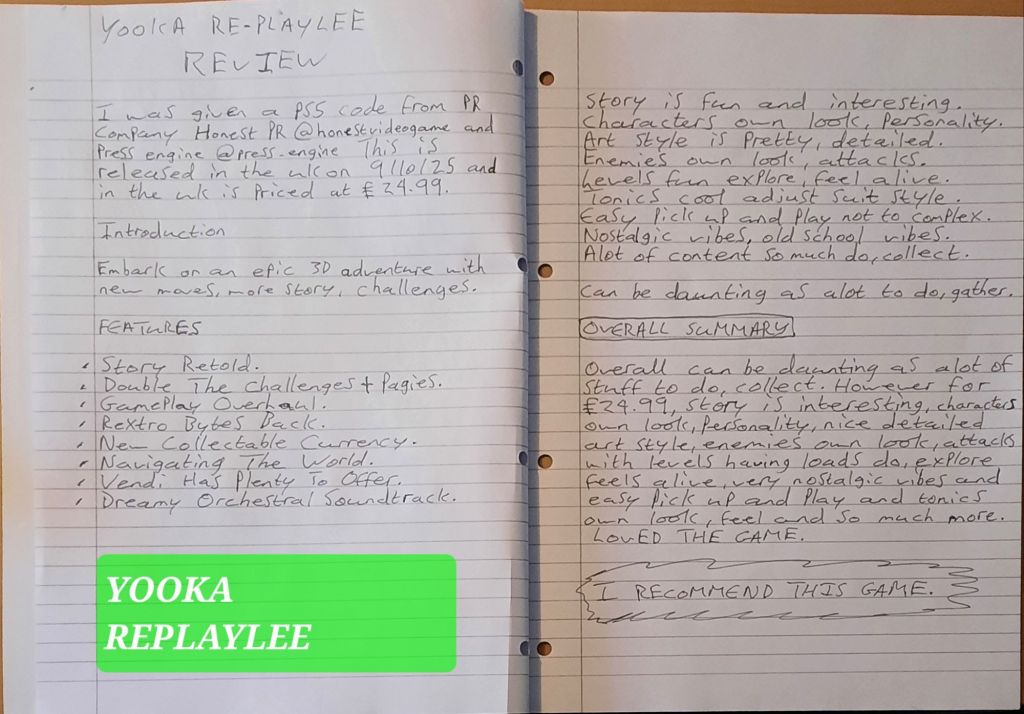 YOOKA RE-PLAYLEE
REVIEW
I was given a PS5 code from PR
Company Honest PR @honestvideogame and
Press engine @press.engine This is
released in the uk on 9/10/25 and
in the uk is Priced at £24.99.
Introduction
Embark on an epic 3D adventure with
new moves, more story, challenges.
FEATURES
Story Retold.
Double The Challenges + Pagies.
GamePlay Overhaul.
Rextro Bytes Back.
New Collectable Currency.
Navigating The World.
Vendi Has Plenty To Offer.
Dreamy Orchestral Soundtrack.
YOOKA
REPLAYLEE
Story is fun and interesting.
Characters own look, Personality.
Art Style is Pretty, detailed.
Enemies own look, attacks.
Levels fun explore, feel alive.
Tonics cool adjust suit style.
Easy Pick up and Play not to complex.
Nostalgic vibes, old school vibes.
Alot of content so much do, collect.
Can be daunting as alot to do, gather.
OVERALL SUMMARY
Overall can be daunting as alot of
stuff to do, collect. However for
£24.99, story is interesting, characters
own look, Personality, nice detailed
art style, enemies own look, attacks
with levels having loads do, explore
feels alive, very nostalgic vibes and
easy Pick up and Play and tonics
own look, feel and so much more.
LOVED THE GAME.
I RECOMMEND THIS GAME.